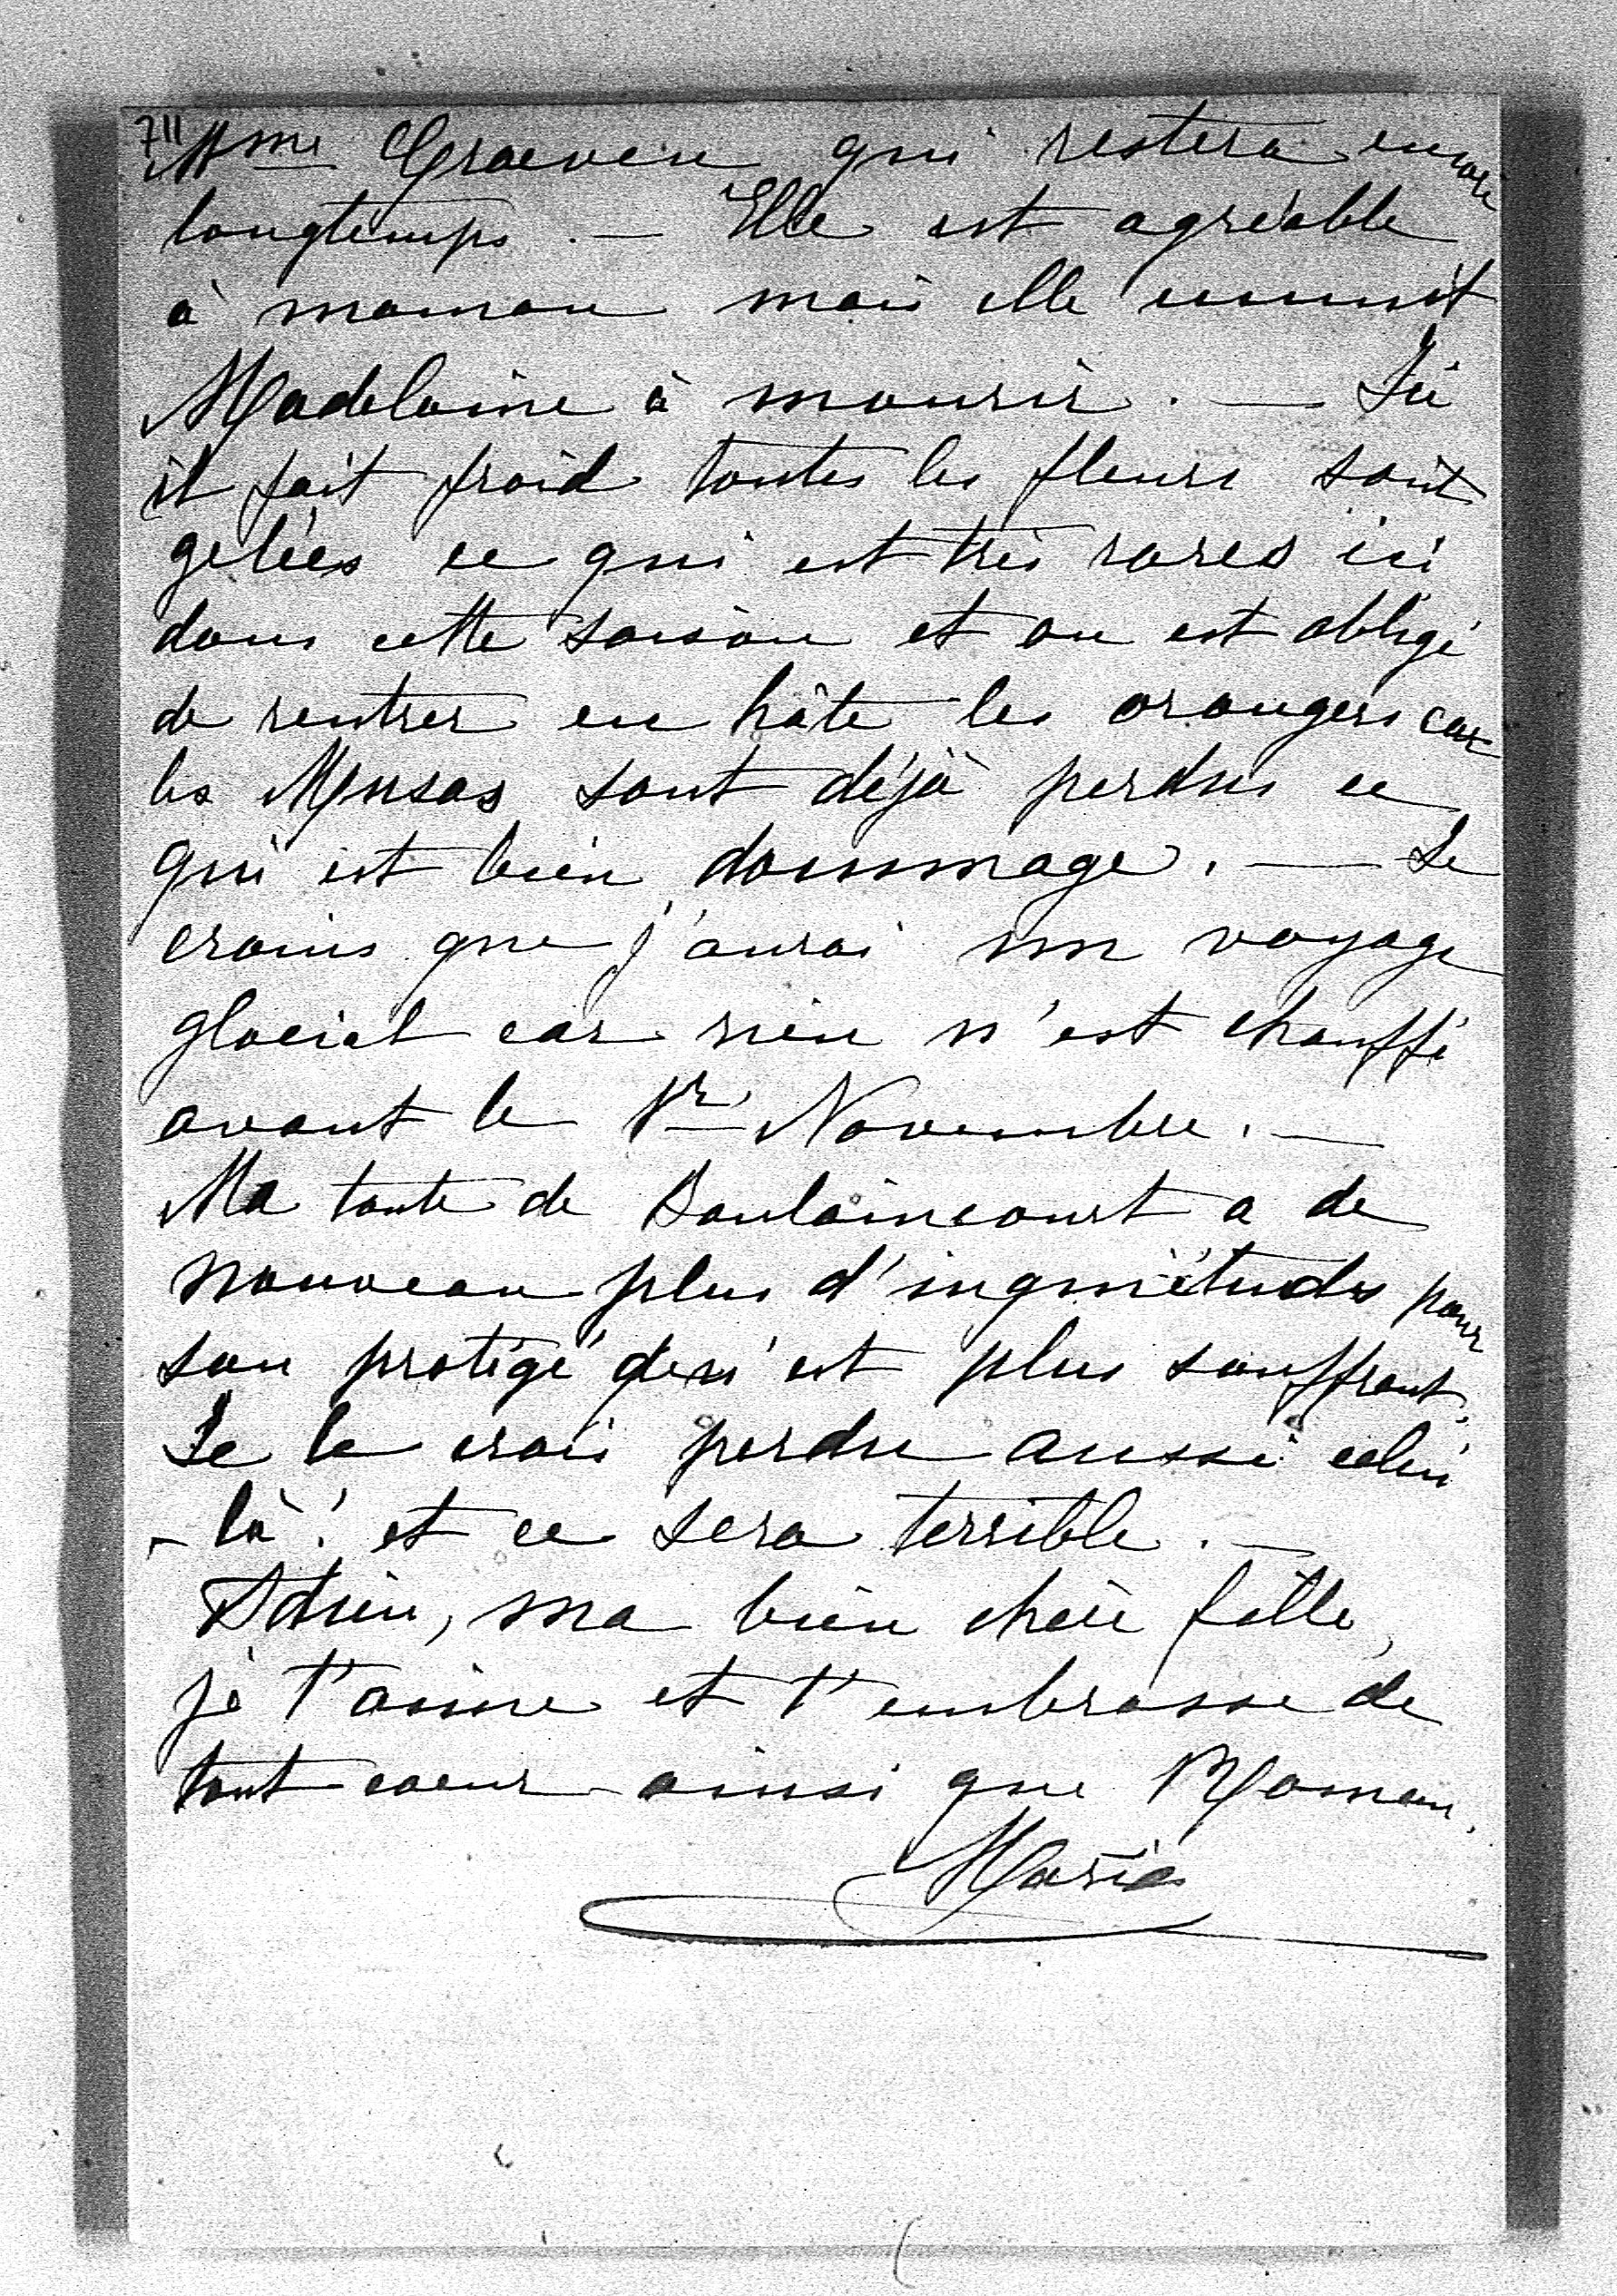 711
Mme Graeven qui restera encore
longtemps. — Elle est agréable
à maman mais elle ennuit
Madelaine à mourir. — Ici
il fait froid toutes les fleurs sont
gelées ce qui est très rares ici
dans cette saison et on est obligé
de rentrer en hâte les orangers car
les Musas sont déjà perdus ce
qui est bien dommage. — Je
crains que j'aurai un voyage
glacial car rien n'est chauffé
avant le 1r Novembre. —
Ma tante de Doulaincourt a de
nouveau plus d'inquiétudes pour
son protégé est plus souffrant.
Je le crois perdu aussi celui
- là! et ce sera terrible. —
Adieu, ma bien chère fille,
je t'aime et t'embrasse de
tout coeur ainsi que Maman.
Marie